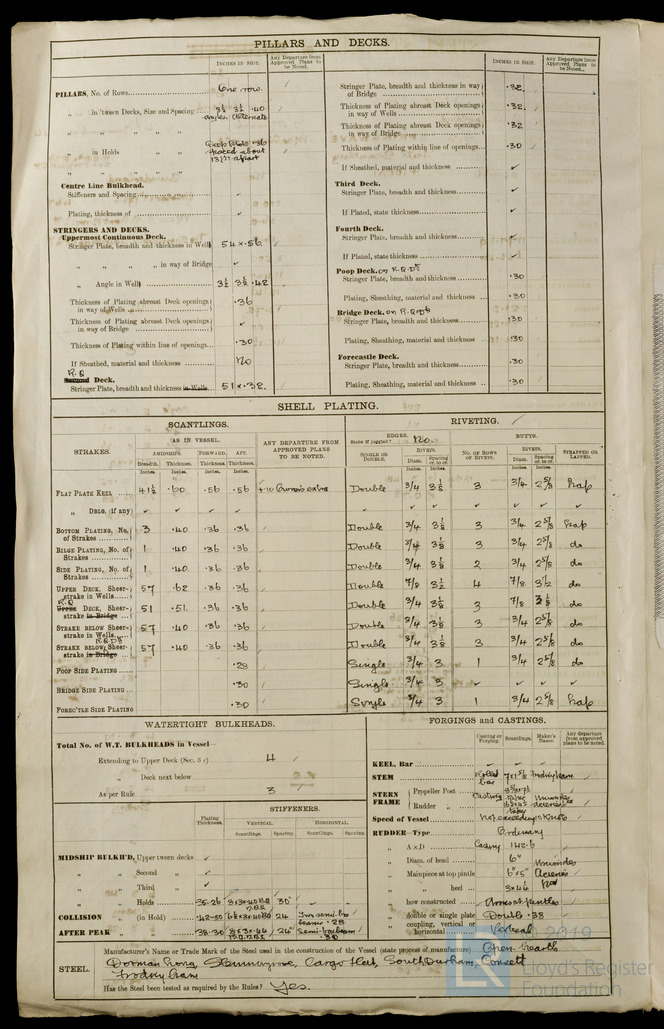 PILLARS AND DECKS.
INCHES IN SHIP.
Any Departure from Approved Plans to be Noted.
PILLARS, No. of Rows
One row.
„ in 'tween Decks, Size and Spacing
3½ 3½ .40
angles alternate
„ in Holds
spaced about
Centre Line Bulkhead.
Stiffeners and Spacing
Plating, thickness of
STRINGERS AND DECKS.
Uppermost Continuous Deck.
Stringer Plate, breadth and thickness in Wells
54 × .56
„ „ „ „ in way of Bridge
„ Angle in Wells
3½ 3½ .42
Thickness of Plating abreast Deck openings in way of Wells
.36
Thickness of Plating abreast Deck openings in way of Bridge
Thickness of Plating within line of openings
.30
If Sheathed, material and thickness
No
R.Q
Second Deck.
Stringer Plate, breadth and thickness in Wells
51 × .32.
INCHES IN SHIP.
Any Departure from Approved Plans to be Noted.
Stringer Plate, breadth and thickness in way of Bridge
.32.
Thickness of Plating abreast Deck openings in way of Wells
.32.
Thickness of Plating abreast Deck openings in way of Bridge
.32
Thickness of Plating within line of openings
.30
If Sheathed, material and thickness
Third Deck.
Stringer Plate, breadth and thickness
If Plated, state thickness
Fourth Deck.
Stringer Plate, breadth and thickness
If Plated, state thickness
Poop Deck. on R.Q.Dk
Stringer Plate, breadth and thickness
.30
Plating, Sheathing, material and thickness
.30
Bridge Deck. on R.Q.Dk
Stringer Plate, breadth and thickness
.30
Plating, Sheathing, material and thickness
.30
Forecastle Deck.
Stringer Plate, breadth and thickness
.30
Plating, Sheathing, material and thickness
.30
SHELL PLATING.
SCANTLINGS.
RIVETING.
STRAKES.
AS IN VESSEL.
AMIDSHIPS.
FORWARD.
AFT.
Breadth.
Thickness.
Thickness.
Thickness.
Inches
Inches
Inches
Inches
ANY DEPARTURE FROM APPROVED PLANS TO BE NOTED.
EDGES.
State if joggled?
No.
SINGLE OR DOUBLE.
RIVETS.
Diam.
Spacing cr. to cr.
Inches
Inches
BUTTS.
No. OF ROWS OF RIVETS.
RIVETS.
Diam.
Spacing cr. to cr.
Inches
Inches
STRAPPED OR LAPPED.
FLAT PLATE KEEL
41½ .60 .56 .56 +.10 Owners extra Double 3/4 3⅛ 3 3/4 2⅝ Lap
„ DBLG. (if any)
BOTTOM PLATING, No. of Strakes
3 .40 .36 .36 Double 3/4 3⅛ 3 3/4 2⅝ Lap
BILGE PLATING, No. of Strakes
1 .40 .36 .36 Double 3/4 3⅛ 3 3/4 2⅝ do
SIDE PLATING, No. of Strakes
1 .40 .36 .36 Double 3/4 3⅛ 2 3/4 2⅝ do
UPPER DECK, Sheerstrake in Wells
57 .62 .36 .36 Double 7/8 3½ 4 7/8 3½ do
R.Q
UPPER DECK, Sheerstrake in Bridge
51 .51 .36 .36 Double 3/4 3⅛ 3 7/8 do
STRAKE BELOW Sheerstrake in Wells
57 .40 .36 .36 Double 3/4 3⅛ 3 3/4 2⅝ do
R.Q.Dk
STRAKE BELOW Sheerstrake in Bridge
57 .40 .36 .36 Double 3/4 3⅛ 3 3/4 2⅝ do
POOP SIDE PLATING
.28 Single 3/4 3 1 3/4 2⅝ do
BRIDGE SIDE PLATING
.30 Single 3/4 3
FOREC'TLE SIDE PLATING
.30 Single 3/4 3 1 3/4 2⅝ Lap
WATERTIGHT BULKHEADS.
Total No. of W.T. BULKHEADS in Vessel
Extending to Upper Deck
4
„ Deck next below
As per Rule
3
STIFFENERS.
Plating Thickness.
VERTICAL.
HORIZONTAL.
Scantlings.
Spacing.
Scantlings.
Spacing.
MIDSHIP BULKH'D, Upper tween decks
„ Second „
„ Third „
„ Holds
.35-.26
30"
COLLISION „ (in Hold)
24
AFTER PEAK „ „
.38-.30
24"
FORGINGS and CASTINGS.
Casting or Forging.
Scantlings.
Maker's Name.
Any departure from approved plans to be noted.
KEEL, Bar
STEM
Rolled bar
STERN FRAME
Propeller Post
Rudder „
Casting
Speed of Vessel
Not exceeding
RUDDER—Type
Ordinary
„ A × D
„ Diam. of head
6"
„ Mainpiece at top pintle
„ „ heel
„ how constructed
„ double or single plate
Double .38
„ coupling, vertical or horizontal
Vertical
STEEL.
Manufacturer's Name or Trade Mark of the Steel used in the construction of the Vessel (state process of manufacture)
Open hearth
Dorman Long, Skinningrove, Cargo Fleet, South Durham, Consett
Frodingham
Has the Steel been tested as required by the Rules?
Yes.
© 2019
Lloyd's Register
Foundation